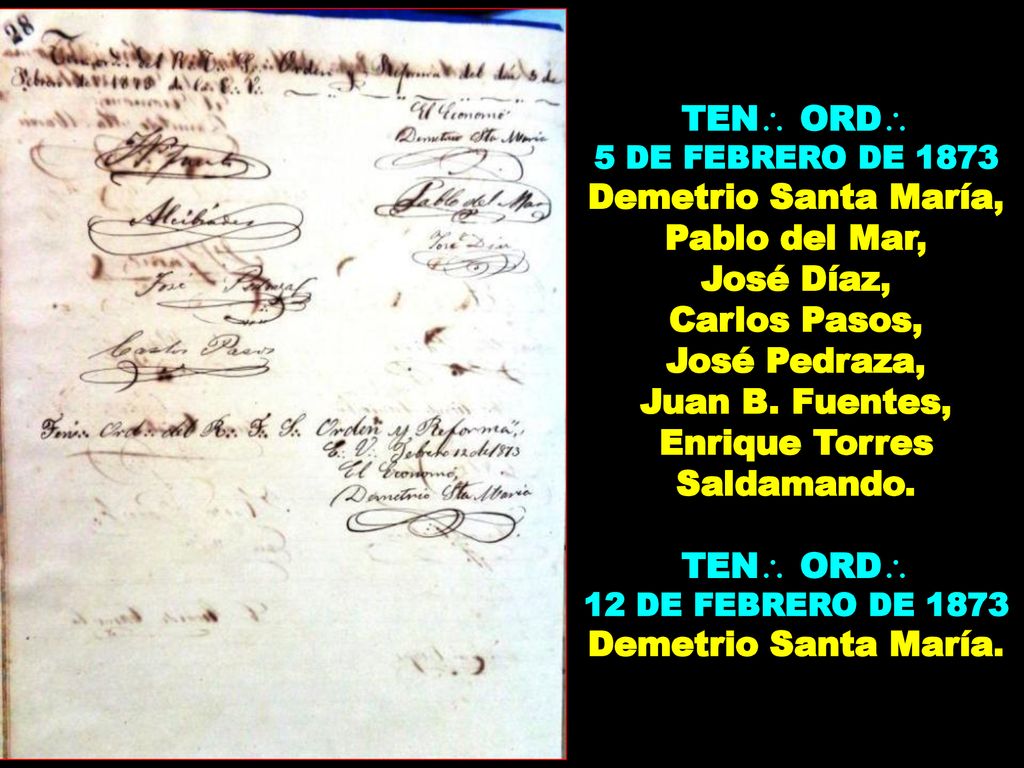 28
Ten∴ ord∴ del R∴ T∴ S∴ Orden y Reforma del día 5 de
Febrero de 1873 de la E∴ V∴
El Economo
Demetrio Sta Maria
Pablo del Mar
Alcibiades
José Diaz
José Pedraza
Carlos Pasos
Ten∴ Ord∴ del R∴ T∴ S∴ Orden y Reforma,
E∴ V∴ Febrero 12 de 1873
El Economo,
Demetrio Sta Maria
TEN∴ ORD∴
5 DE FEBRERO DE 1873
Demetrio Santa María,
Pablo del Mar,
José Díaz,
Carlos Pasos,
José Pedraza,
Juan B. Fuentes,
Enrique Torres
Saldamando.
TEN∴ ORD∴
12 DE FEBRERO DE 1873
Demetrio Santa María.